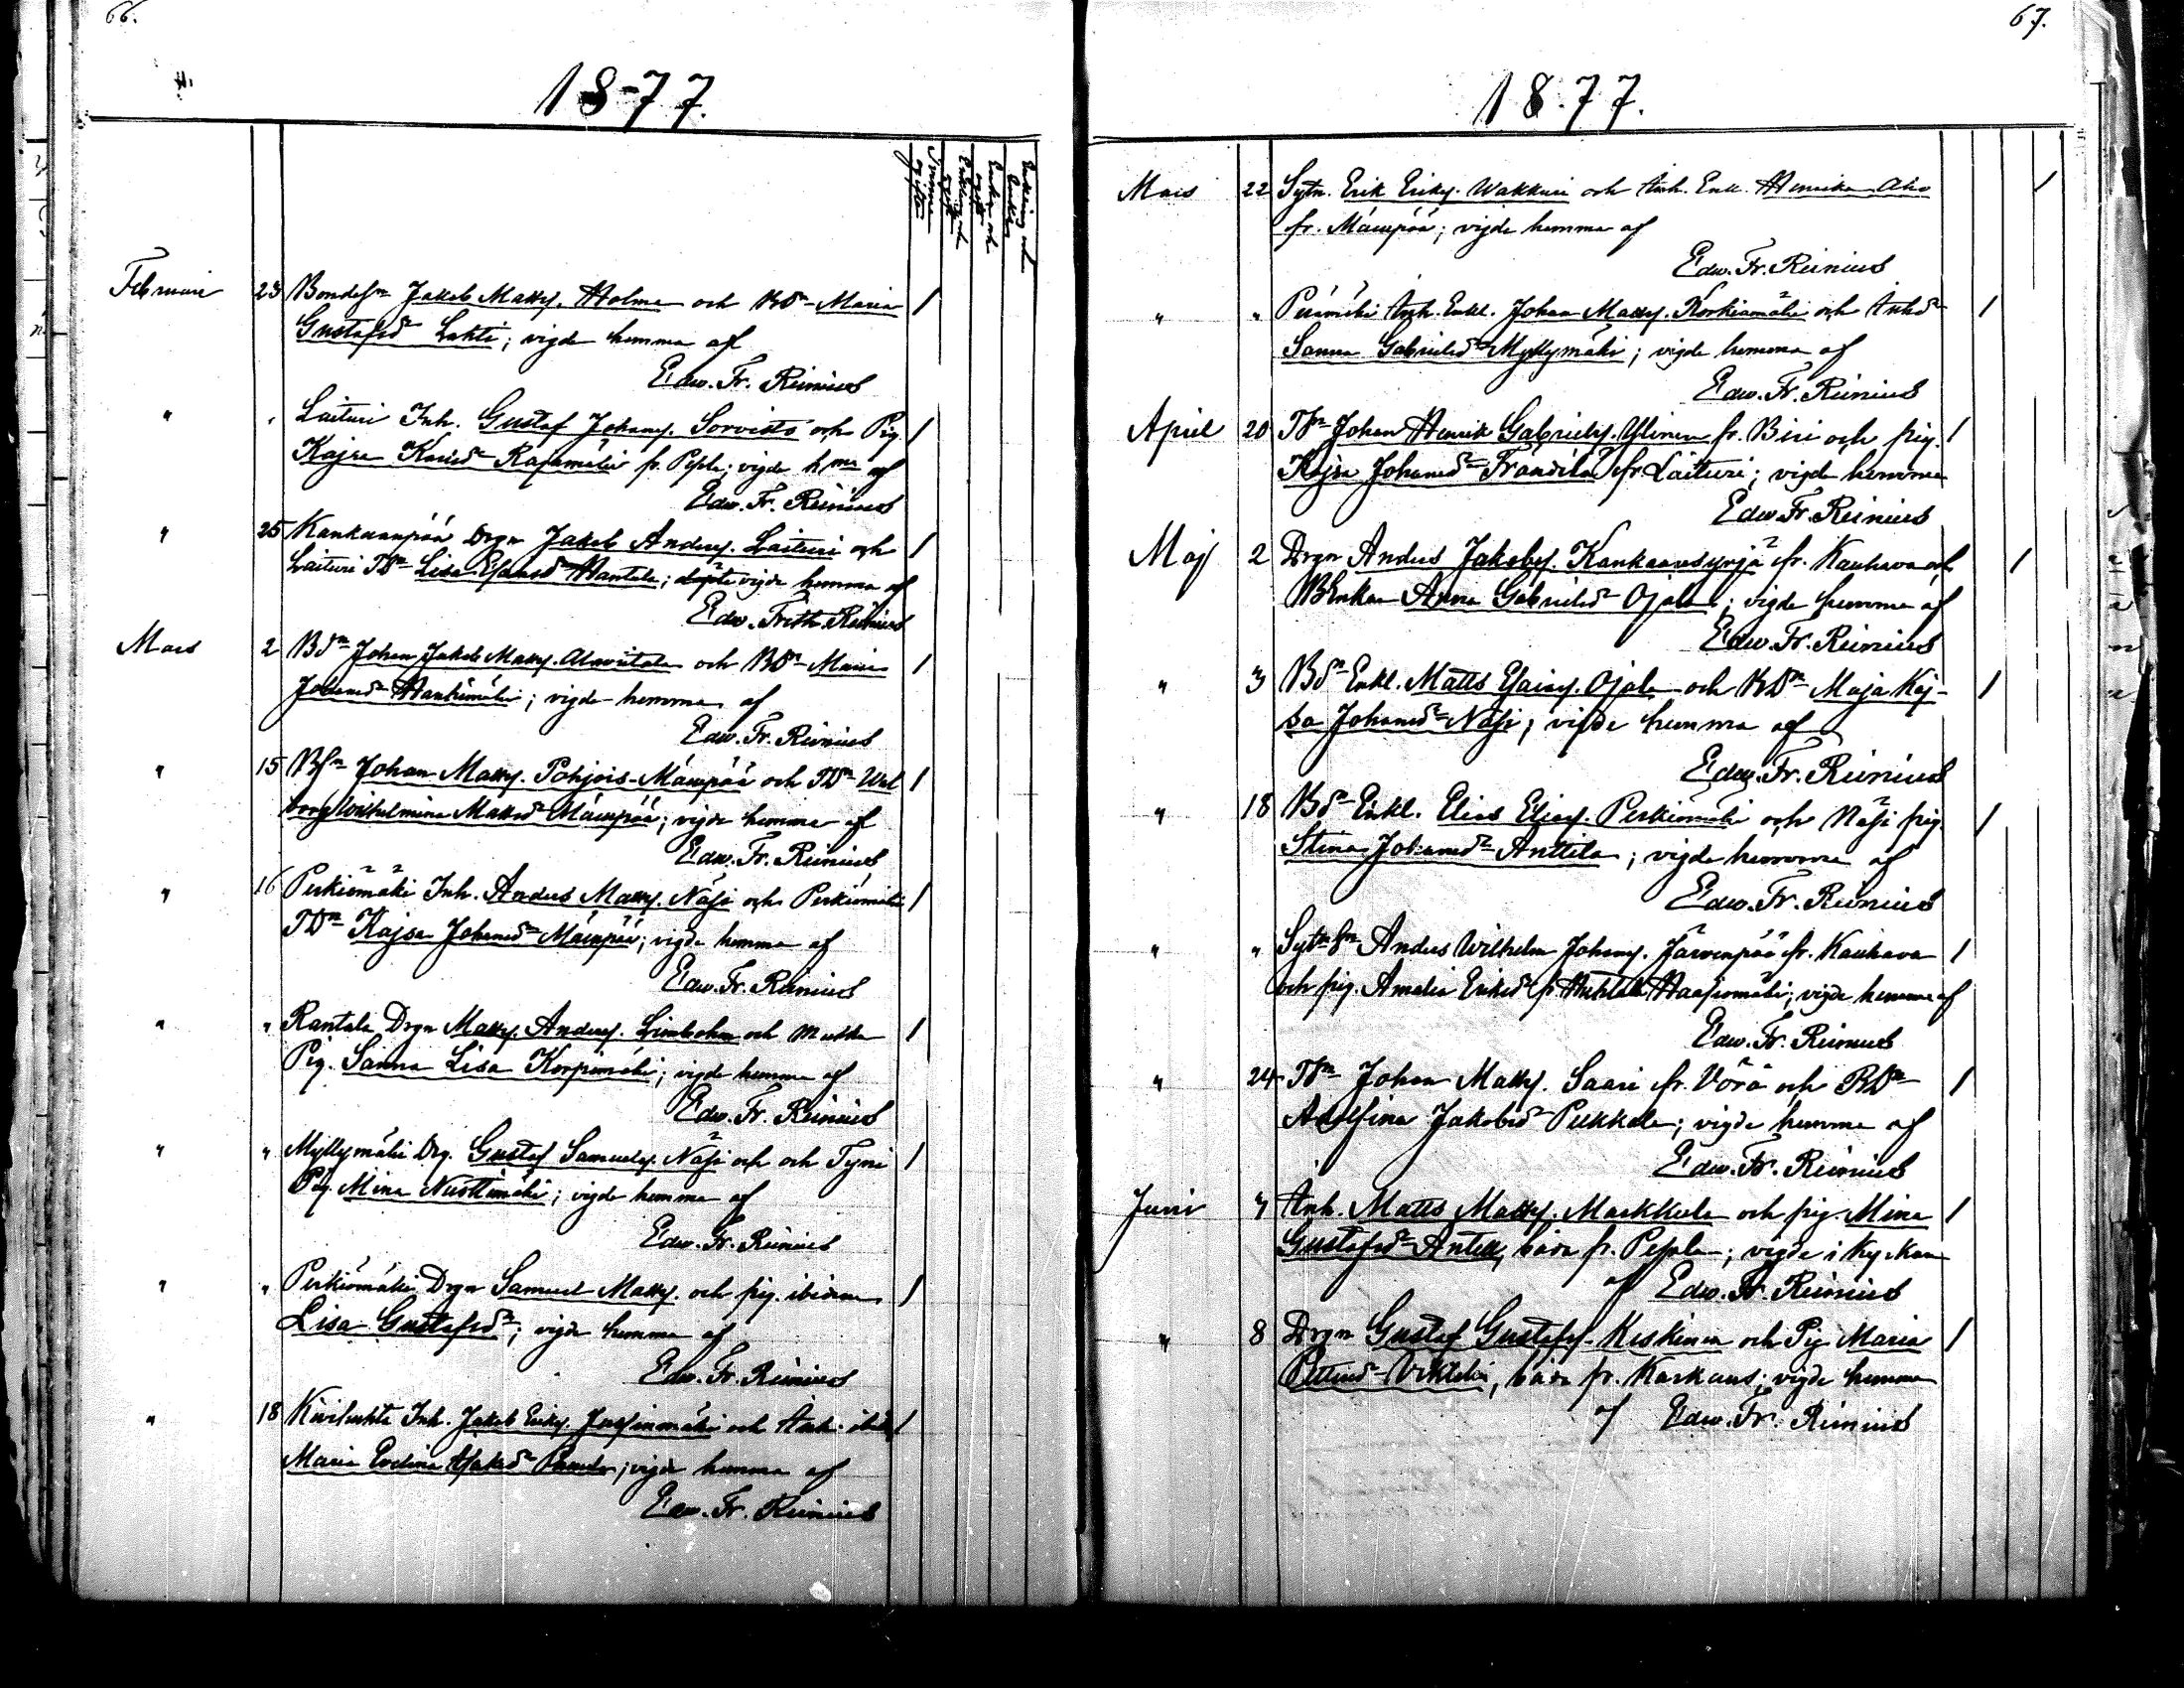 66.
1877.
Enkling och Enka
Enka och ogift
Enkling och ogift
Tvenne ogifta
Februari 23 Bondesn Jakob Matts. Holma och BDr Maria /
Gustafsdr Lahti; vigde hemma af
Edw. Fr. Reinius
" " Laituri Inh. Gustaf Johans. Sorvisto och Pig. /
Kajsa Karlsdr Rajamäki fr. ; vigde hma af
Edw. Fr. Reinius
" 25 Kankaanpää Drgn Jakob Anders. Laituri och /
Laituri TDr Lisa Esaiasdr Hantala; vigde hemma af
Edw. Frith. Reinius
Mars 2 BSn Johan Jakob Matts. Alaviitala och BDr Maria /
Johansdr; vigde hemma af
Edw. Fr. Reinius
" 15 BSn Johan Matts. Pohjois-Mäenpää och TDr Wal /
borg Wilhelmina Mattsdr Mäenpää; vigde hemma af
Edw. Fr. Reinius
" 16 Perkiömäki Inh. Anders Matts. Näsi och Perkiömäki /
TDr Kajsa Johansdr Mäenpää; vigde hemma af
Edw. Fr. Reinius
" " Rantala Drgn Matts. Anders. och /
Pig. Sanna Lisa Korpimäki; vigde hemma af
Edw. Fr. Reinius
" " Myllymäki Drg. Gustaf Samuels. Näsi och och Tyni /
Pig. Mina; vigde hemma af
Edw. Fr. Reinius
" " Perkiömäki Drgn Samuel Matts. och pig. ibidem /
Lisa Gustafsdr; vigde hemma af
Edw. Fr. Reinius
" 18 Kiviluhta Inh. Jakob Eriks. och Inh. ibid. /
Maria Evelina; vigde hemma af
Edw. Fr. Reinius
67.
1877.
Mars 22 Sytn. Erik Eriks. Wakkuri och Inh. Enk. Henrika Aho /
fr. Mäenpää; vigde hemma af
Edw. Fr. Reinius
" " Inh. Enkl. Johan Matts. Korkiamäki och Inhdr /
Sanna Gabrielsdr Myllymäki; vigde hemma af
Edw. Fr. Reinius
April 20 TSn Johan Henrik Gabriels. Ylinen fr. och pig. /
Kajsa Johansdr Frandila fr. Laituri; vigde hemma
Edw. Fr. Reinius
Maj 2 Drgn Anders Jakobs. Kankaansyrjä fr. Kauhava och /
BEnkan Anna Gabrielsdr Ojala; vigde hemma af
Edw. Fr. Reinius
" 3 BSn Enkl. Matts Esaias. Ojala och BDr Maja Kaj- /
sa Johansdr Näsi; vigde hemma af
Edw. Fr. Reinius
" 18 BS. Enkl. Elias Elias. Perkiömäki och Näsi pig. /
Stina Johansdr Anttila; vigde hemma af
Edw. Fr. Reinius
" " SytnSn Anders Wilhelm Johans. Järvenpää fr. Kauhava /
och pig. Amalia Eriksdr fr. Haapiomäki; vigde hemma af
Edw. Fr. Reinius
" 24 TSn Johan Matts. Saari fr. Vörå och BDr /
Adolfina Jakobsdr Pukkala; vigde hemma af
Edw. Fr. Reinius
Juni 7 Inh. Matts Matts. Markkula och pig. Mina /
Gustafsdr, båda fr.; vigde i Kyrkan
af Edw. Fr. Reinius
" 8 Drgn Gustaf Gustafs. Keskinen och Pig Maria /
båda fr.; vigde hemma
af Edw. Fr. Reinius